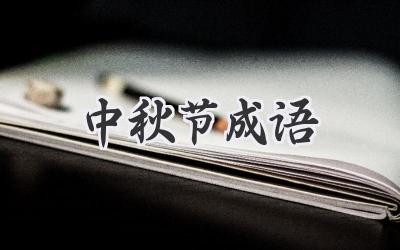 中秋节成语